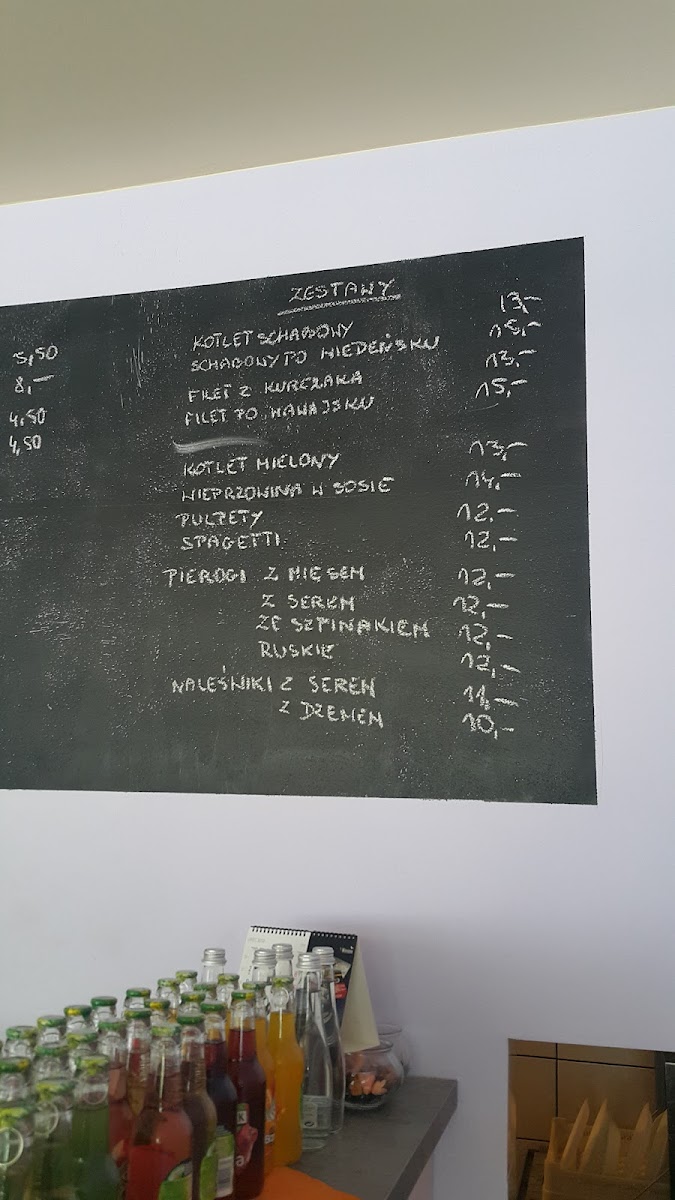 5,50
8,-
4,50
4,50
ZESTAWY
KOTLET SCHABOWY 13,-
SCHABOWY PO WIEDEŃSKU 15,-
FILET Z KURCZAKA 13,-
FILET PO HAWAJSKU 15,-
KOTLET MIELONY 13,-
WIEPRZOWINA W SOSIE 14,-
PULPETY 12,-
SPAGETTI 12,-
PIEROGI Z MIĘSEM 12,-
Z SEREM 12,-
ZE SZPINAKIEM 12,-
RUSKIE 12,-
NALEŚNIKI Z SEREM 11,-
Z DŻEMEM 10,-